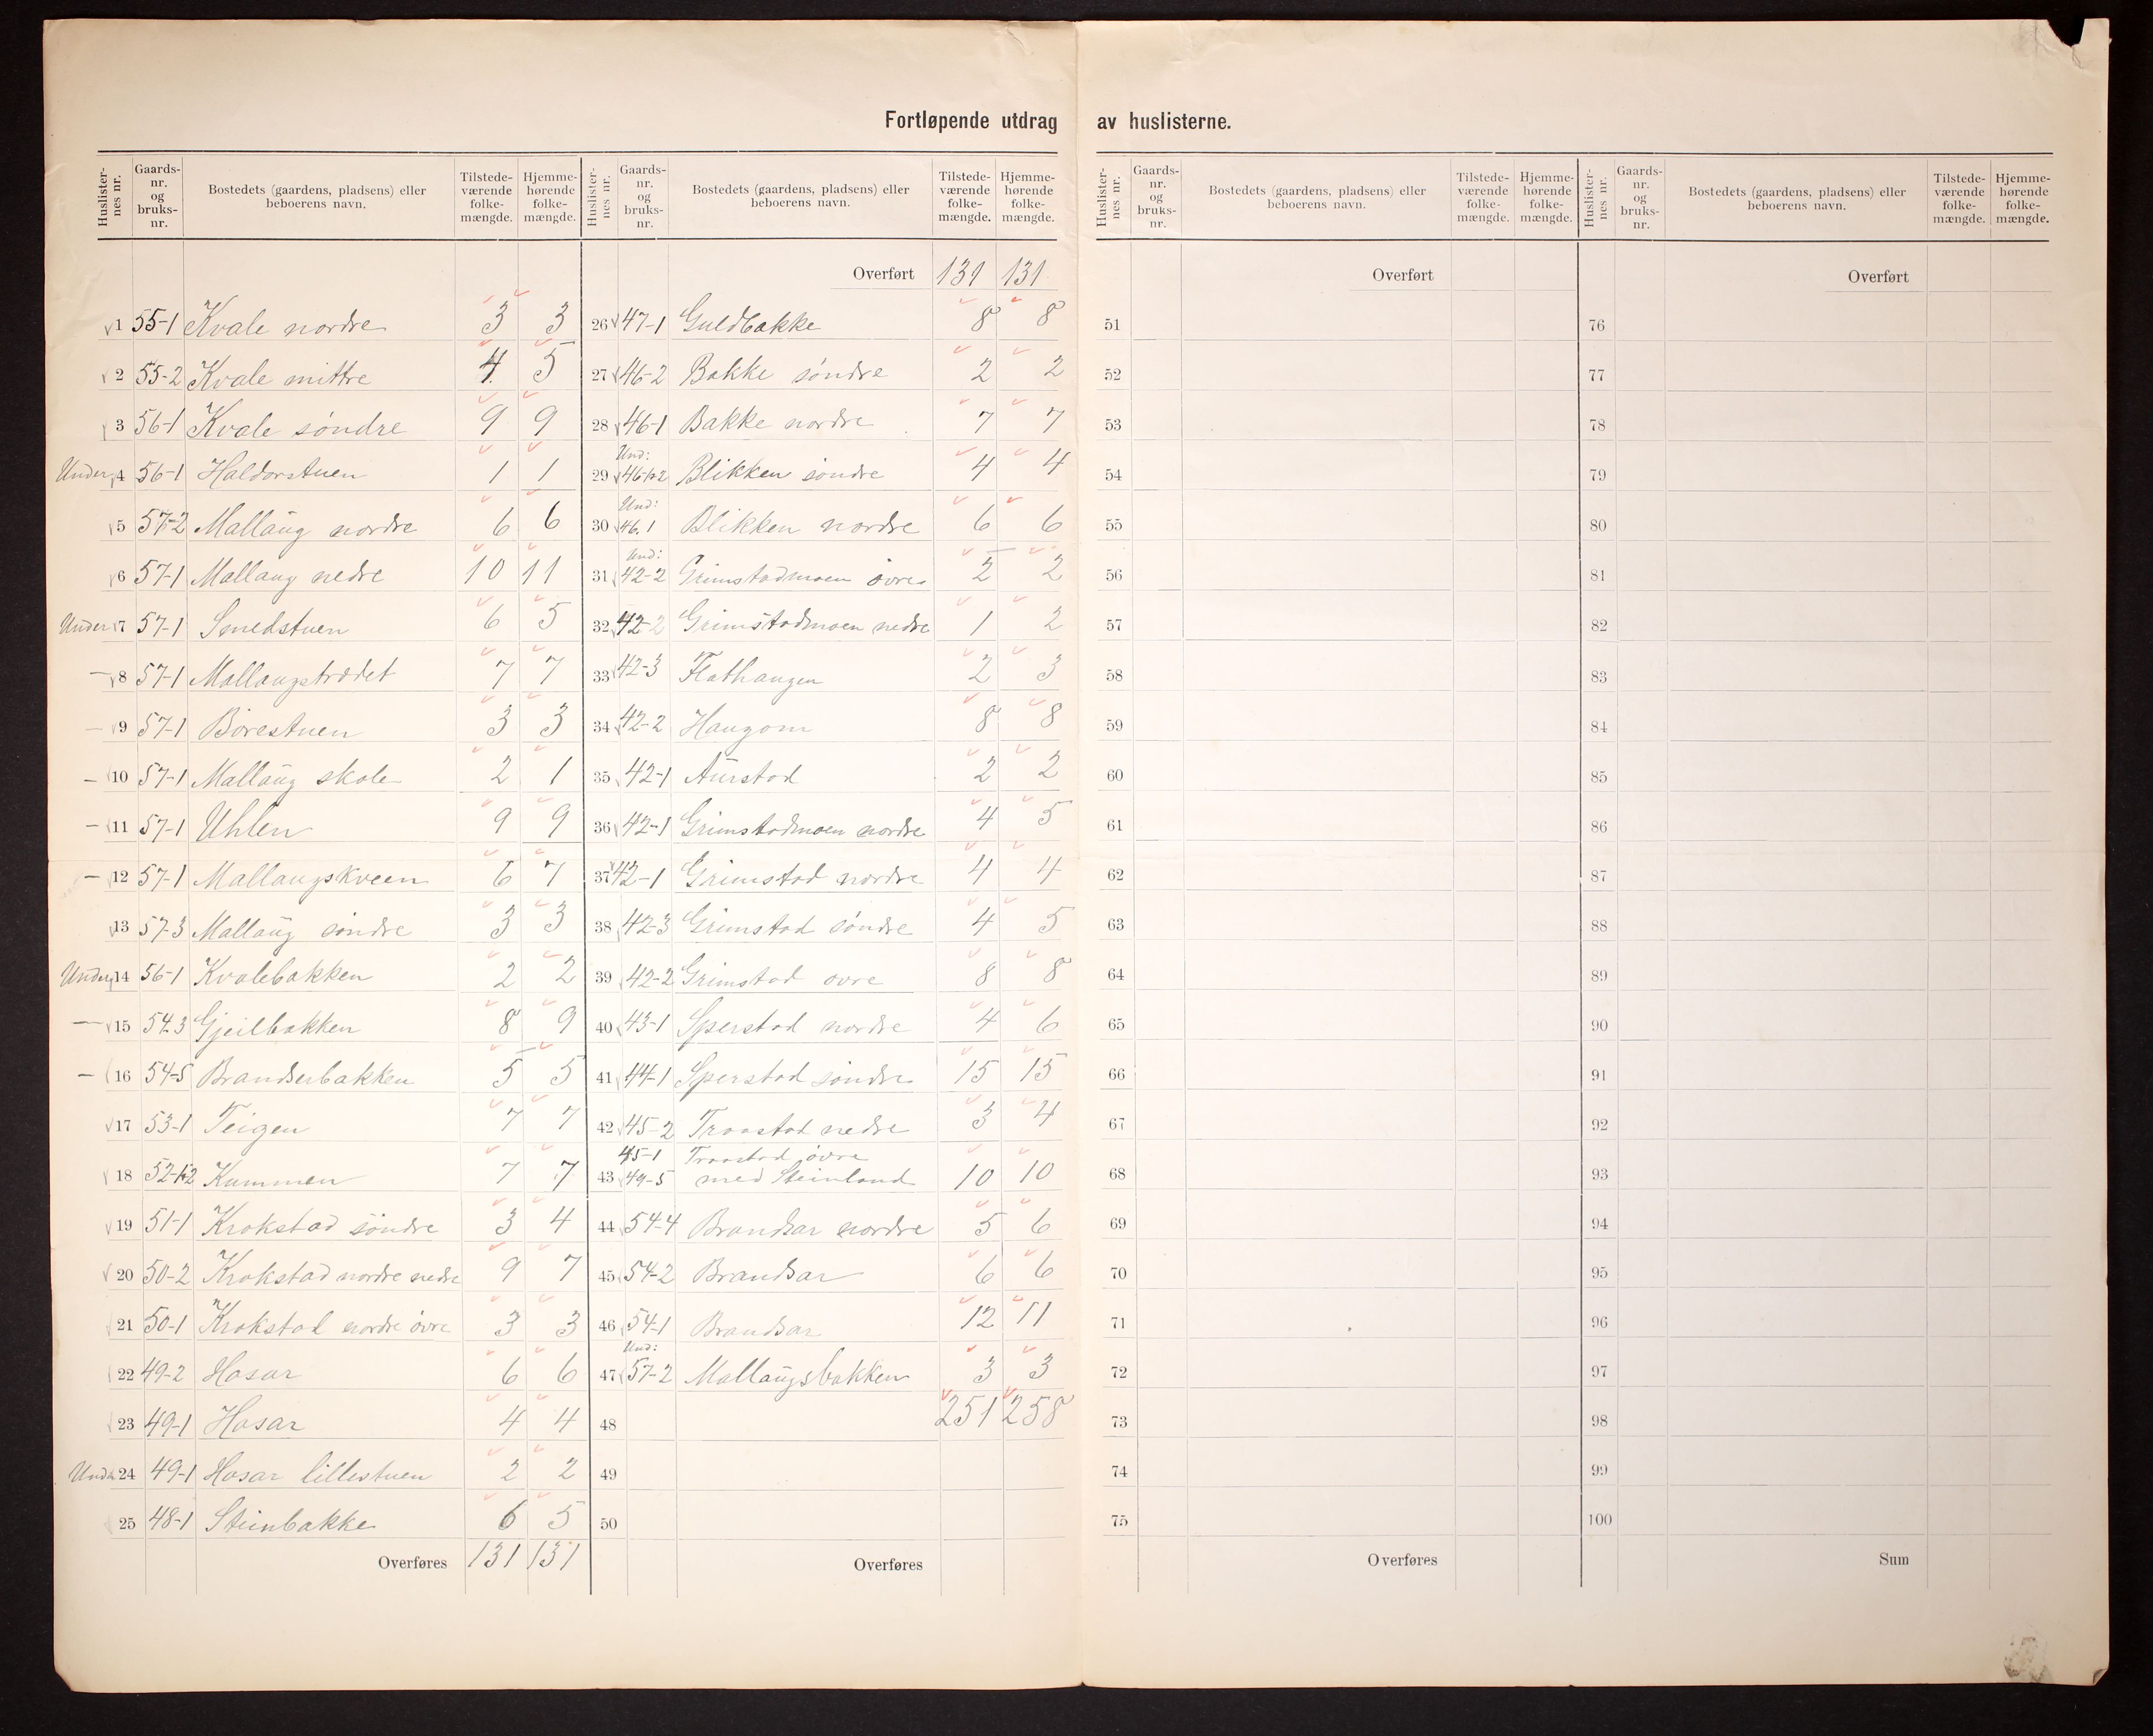 Fortløpende utdrag av huslisterne.
Huslister-nes nr. Gaards-nr. og bruks-nr. Bostedets (gaardens, pladsens) eller beboerens navn. Tilstede-værende folke-mængde. Hjemme-hørende folke-mængde.
1 55-1 Kvale nordre 3 3
2 55-2 Kvale mittre 4 5
3 56-1 Kvale søndre 9 9
Under 4 56-1 Haldorstuen 1 1
5 57-2 Mallaug nordre 6 6
6 57-1 Mallaug nedre 10 11
Under 7 57-1 Smedstuen 6 5
— 8 57-1 Mallaugstrødet 7 7
— 9 57-1 Borestuen 3 3
— 10 57-1 Mallaug skole 2 1
— 11 57-1 Uhlen 9 9
— 12 57-1 Mallaugskveen 6 7
13 57-3 Mallaug søndre 3 3
Under 14 56-1 Kvalebakken 2 2
— 15 54.3 Gjeilbakken 8 9
— 16 54-5 Brandserbakken 5 5
17 53-1 Teigen 7 7
18 52-1-2 Kummen 7 7
19 51-1 Krokstad søndre 3 4
20 50-2 Krokstad nordre nedre 9 7
21 50-1 Krokstad nordre øvre 3 3
22 49-2 Hosar 6 6
23 49-1 Hosar 4 4
Under 24 49-1 Hosar lillestuen 2 2
25 48-1 Steinbakke 6 5
Overføres 131 131
Huslister-nes nr. Gaards-nr. og bruks-nr. Bostedets (gaardens, pladsens) eller beboerens navn. Tilstede-værende folke-mængde. Hjemme-hørende folke-mængde.
Overført 131 131
26 47-1 Guldbakke 8 8
27 46-2 Bakke søndre 2 2
28 46-1 Bakke nordre 7 7
Und:
29 46-1-2 Blikken søndre 4 4
Und:
30 46.1 Blikken nordre 6 6
Und:
31 42-2 Grimstadmoen øvre 2 2
32 42-2 Grimstadmoen nedre 1 2
33 42-3 Flathaugen 2 3
34 42-2 Haugom 8 8
35 42-1 Aurstad 2 2
36 42-1 Grimstadmoen nordre 4 5
37 42-1 Grimstad nordre 4 4
38 42-3 Grimstad søndre 4 5
39 42-2 Grimstad øvre 8 8
40 43-1 Sperstad nordre 4 6
41 44-1 Sperstad søndre 15 15
42 45-2 Traastad nedre 3 4
45-1 Traastad øvre
43 49-5 med Steinland 10 10
44 54-4 Brandsar nordre 5 6
45 54-2 Brandsar 6 6
46 54-1 Brandsar 12 11
Und:
47 57-2 Mallaugsbakken 3 3
48 251 258
49
50
Overføres
Huslister-nes nr. Gaards-nr. og bruks-nr. Bostedets (gaardens, pladsens) eller beboerens navn. Tilstede-værende folke-mængde. Hjemme-hørende folke-mængde.
Overført
51
52
53
54
55
56
57
58
59
60
61
62
63
64
65
66
67
68
69
70
71
72
73
74
75
Overføres
Huslister-nes nr. Gaards-nr. og bruks-nr. Bostedets (gaardens, pladsens) eller beboerens navn. Tilstede-værende folke-mængde. Hjemme-hørende folke-mængde.
Overført
76
77
78
79
80
81
82
83
84
85
86
87
88
89
90
91
92
93
94
95
96
97
98
99
100
Sum